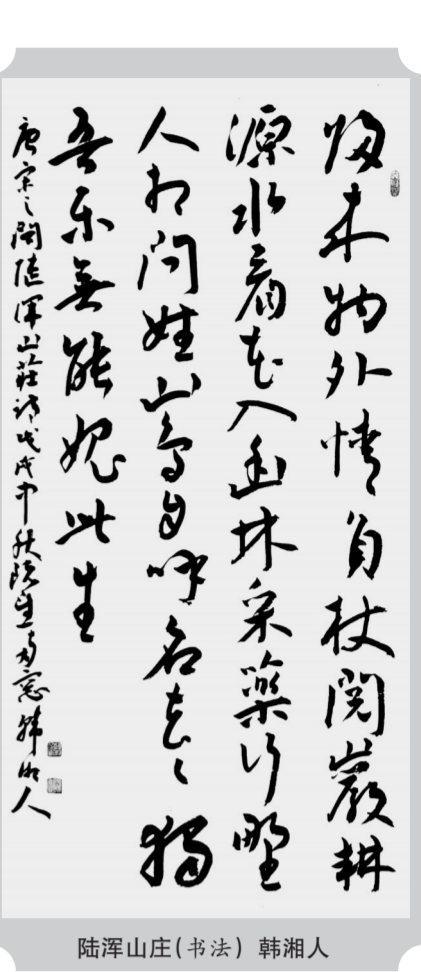 归来物外情负杖阅巖耕
源水看花入幽林采藥行野
人相问姓山鸟自呼名去々獨
吾乐無能愧此生
唐宋之问陸渾山莊诗戊戌中秋韩湘人
陆浑山庄(书法) 韩湘人